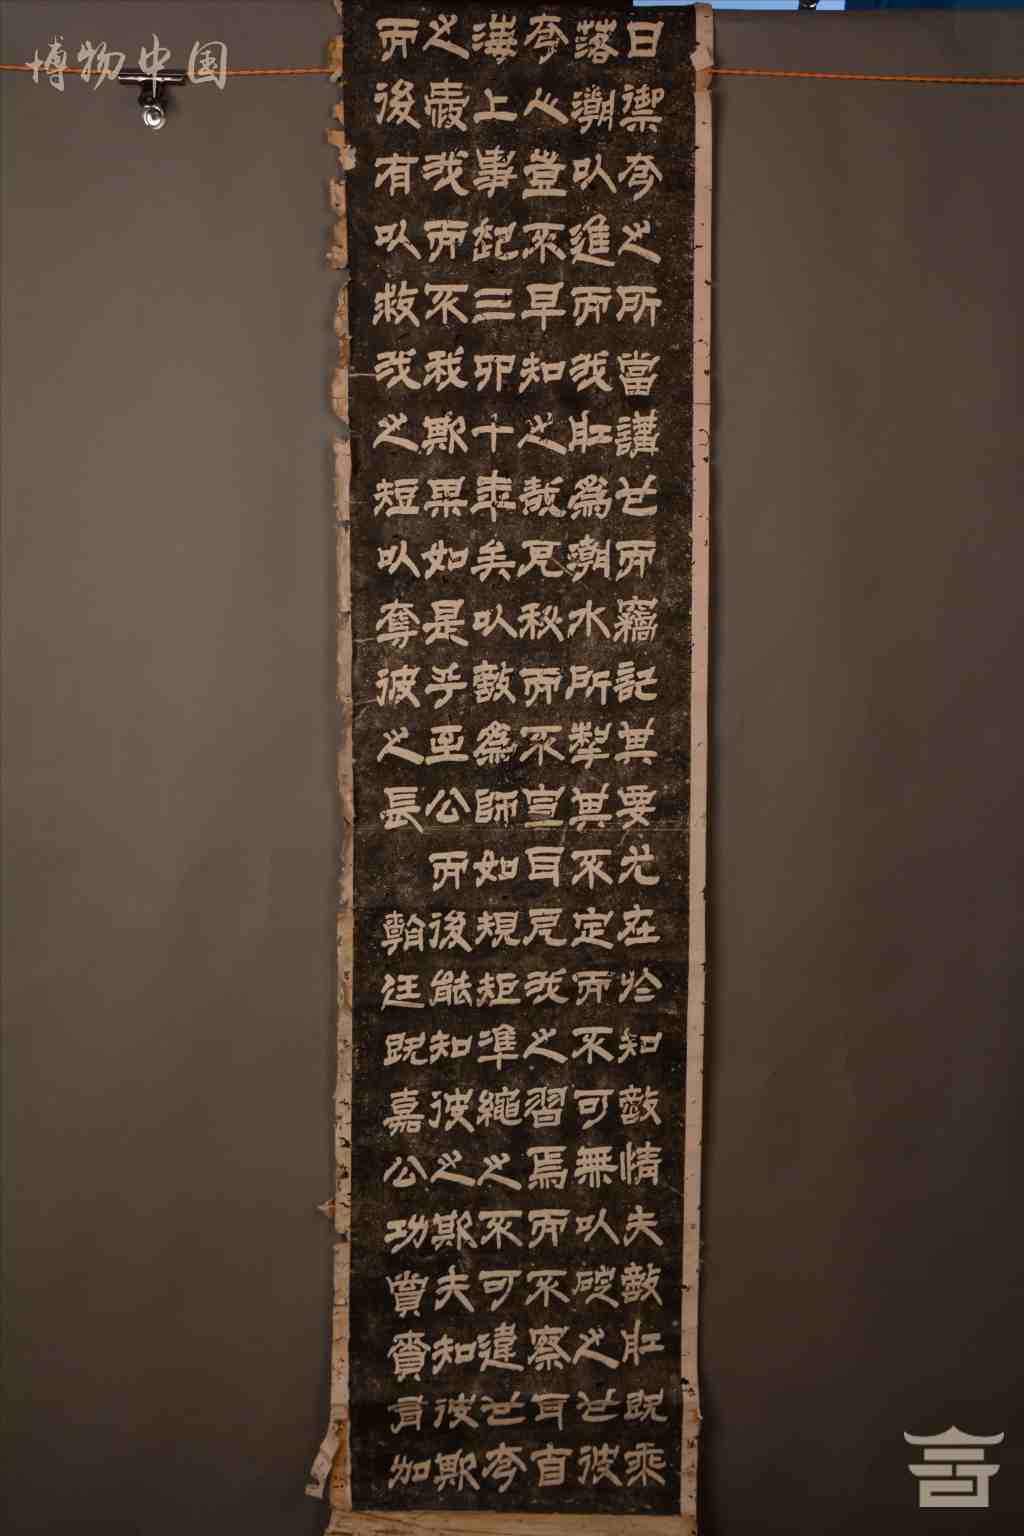 日禦夷之所當講也而竊記其要尤在於知敵情夫敵舡既乘
落潮以進而我舡爲潮水所掣其不定而不可無以碇之也彼
夷心豈不早知之哉見秘而不宣耳見我之習焉而不察耳自
海上事起三四十年矣以敵爲師如規矩準繩之不可違也夷
之我而不我欺果如是乎至公而後能知彼之欺夫知彼欺
而後有以救我之短以奪彼之長 朝廷既嘉公功賞賚有加
博物中国